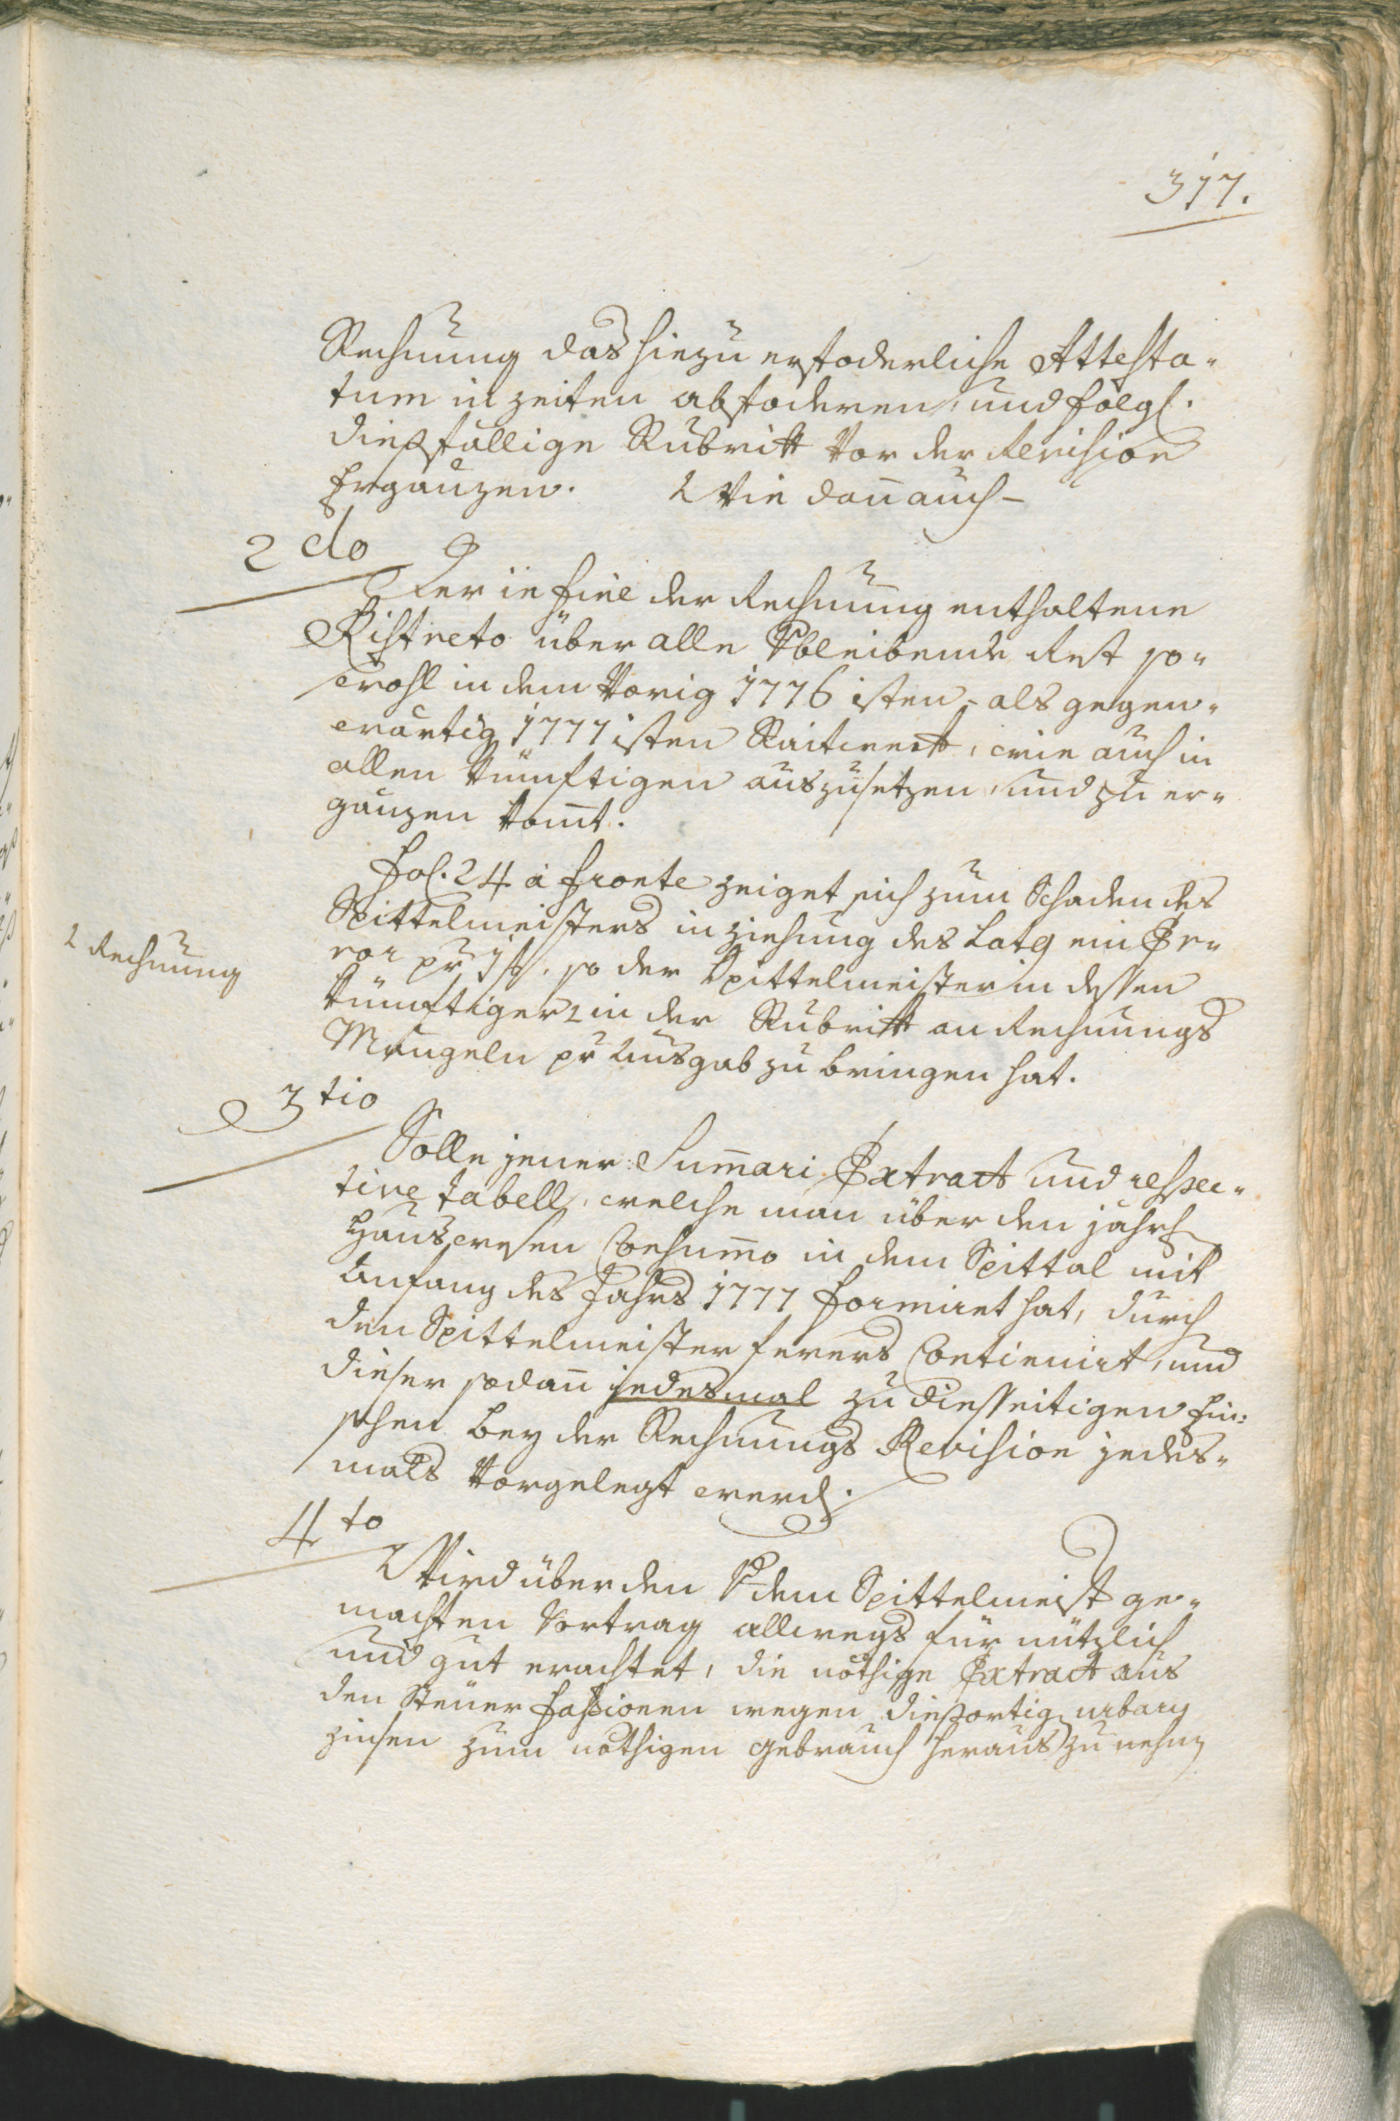 317.
Rechnung das hinzu erfoderliche Attesta-
tum in zeiten abfoderen, und folgl.
dießfällige Rubrikh vor der Revision
Ergänzen. Wie dañ auch –
2do
Der in fine der Rechnung enthaltene
Ristreto über alle Verbleibende Rest so-
wohl in dem Vorig 1776isten, als gegen-
wärtig 1777isten, wie auch in
allen künftigen auszusetzen, und zu er-
gänzen komt.
Fol. 24 à fronte zeiget sich zum Schaden des
Spittelmeisters in ziehung des Latg ein Er-
ror pr 1 f. so der Spittelmeister in dessen
künftiger in der Rubrikh an Rechnungs
Rechnung
Mängeln pr Ausgab zu bringen hat.
3tio
Solle jener Sum̄ari Extract und respec-
tive tabell, welche man über den jährl
Hauswesen Consum̄o in dem Spittal mit
Anfang des Jahrs 1777 formiret hat, durch
den Spittelmeister ferers Continuirt, und
dieser sodañ jedesmal zu diesseitigen Ein:
sehen bey der Rechnungs Revision jedes-
mals vorgelegt werd.
4to
Wird über den Von dem Spittelmeist ge-
machten Vortrag allwegs für nützlich
und gut erachtet, die nöthige Extract aus
den Steuer fassionen wegen dießortig urbary
zinsen zum nöthigen gebrauch heraus zu nehm